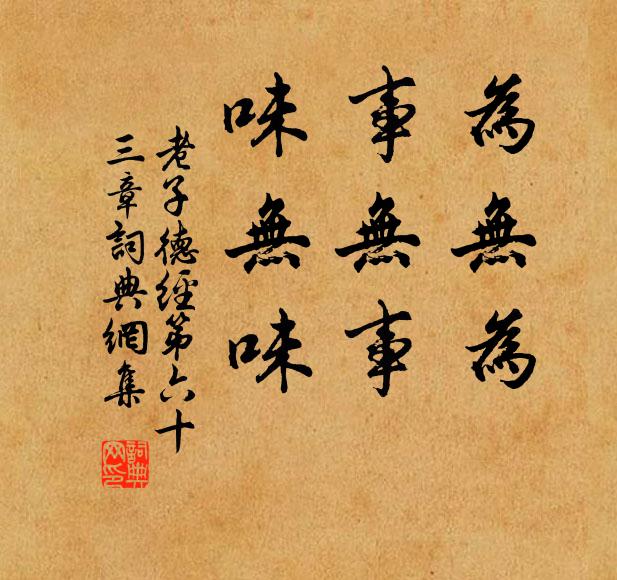 為無為
事無事
味無味
老子德經第六十
三章詞典網集
詞典网印